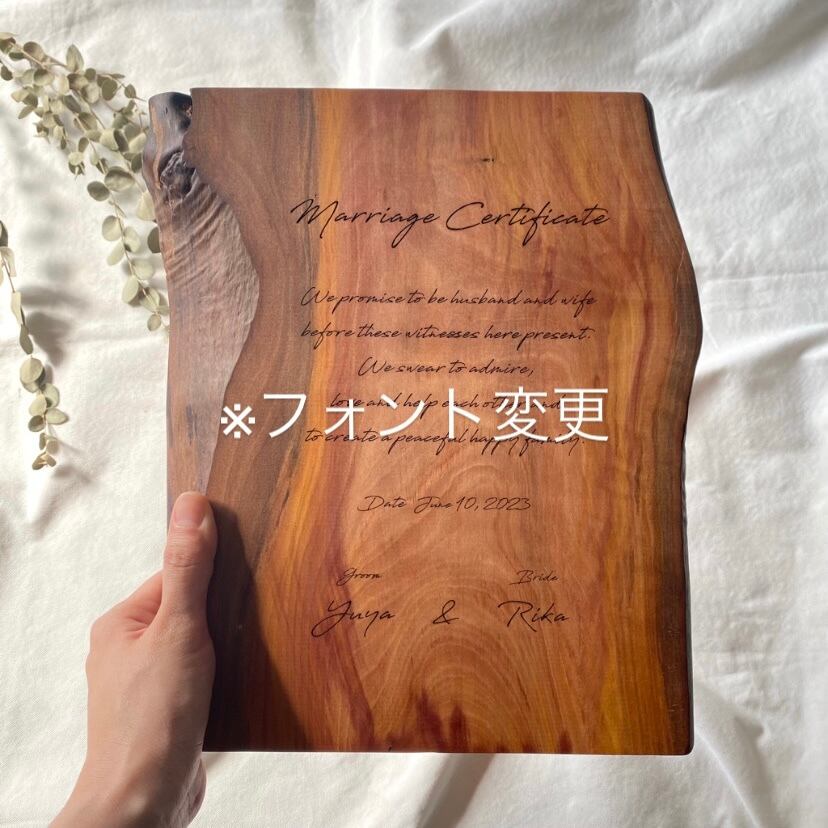 Marriage Certificate
We promise to be husband and wife
before these witnesses here present.
We swear to admire,
love and help each other and
※フォント変更
to create a peaceful happy family.
Date June 10, 2023
Groom Bride
Yuya & Rika